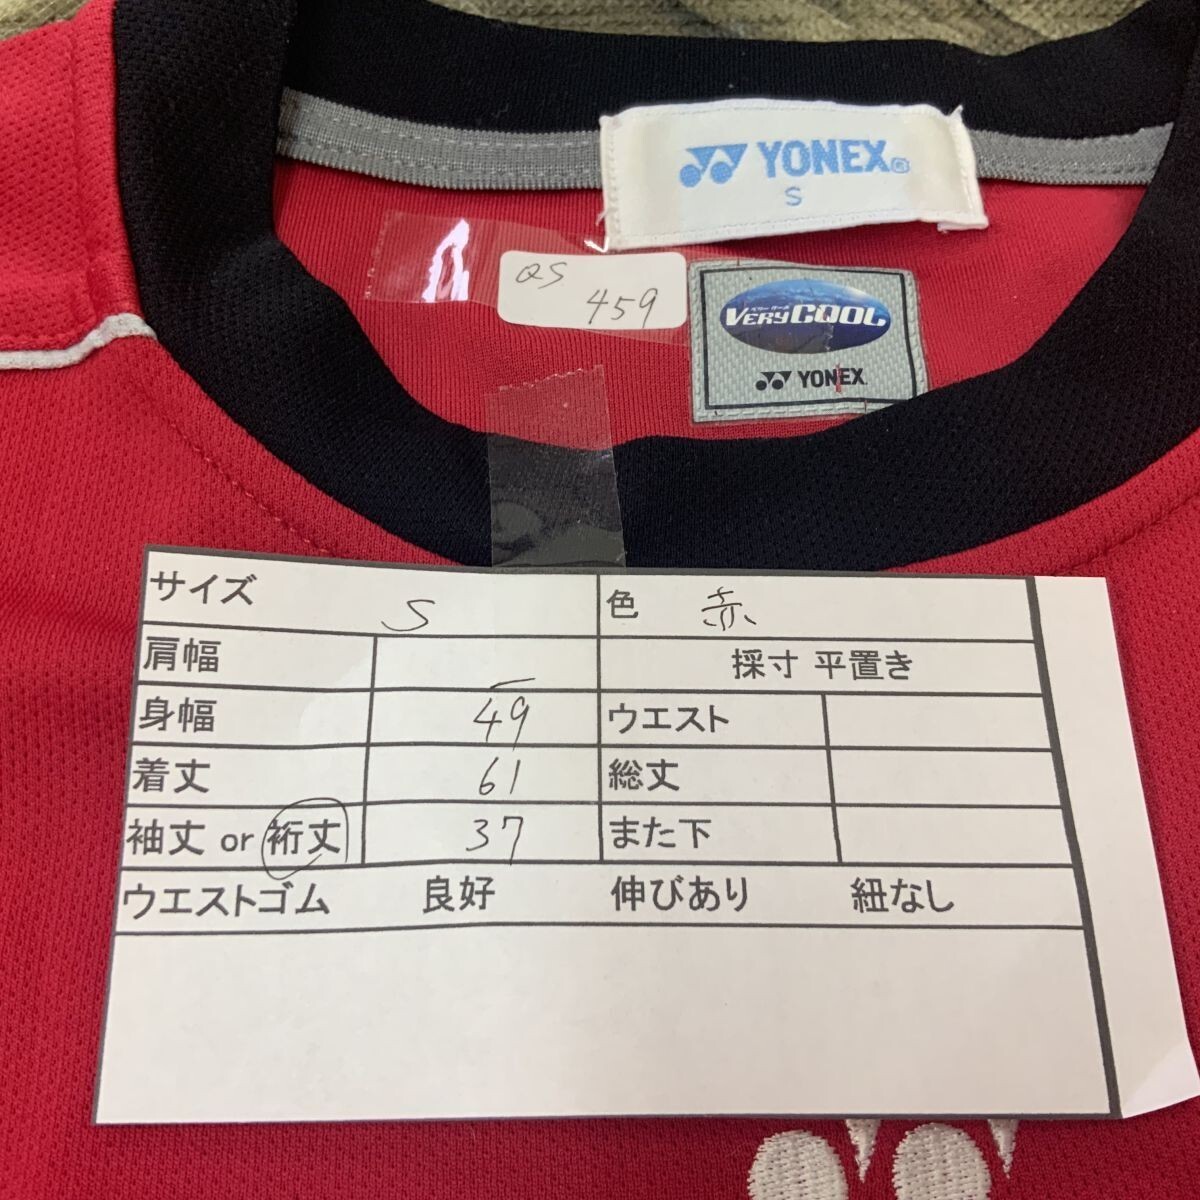 YONEX®
S
QS
459
ベリークール
VERYCOOL
YONEX
サイズ S 色 赤
肩幅 — 採寸 平置き
身幅 49 ウエスト
着丈 61 総丈
袖丈 or 裄丈 37 また下
ウエストゴム 良好 伸びあり 紐なし